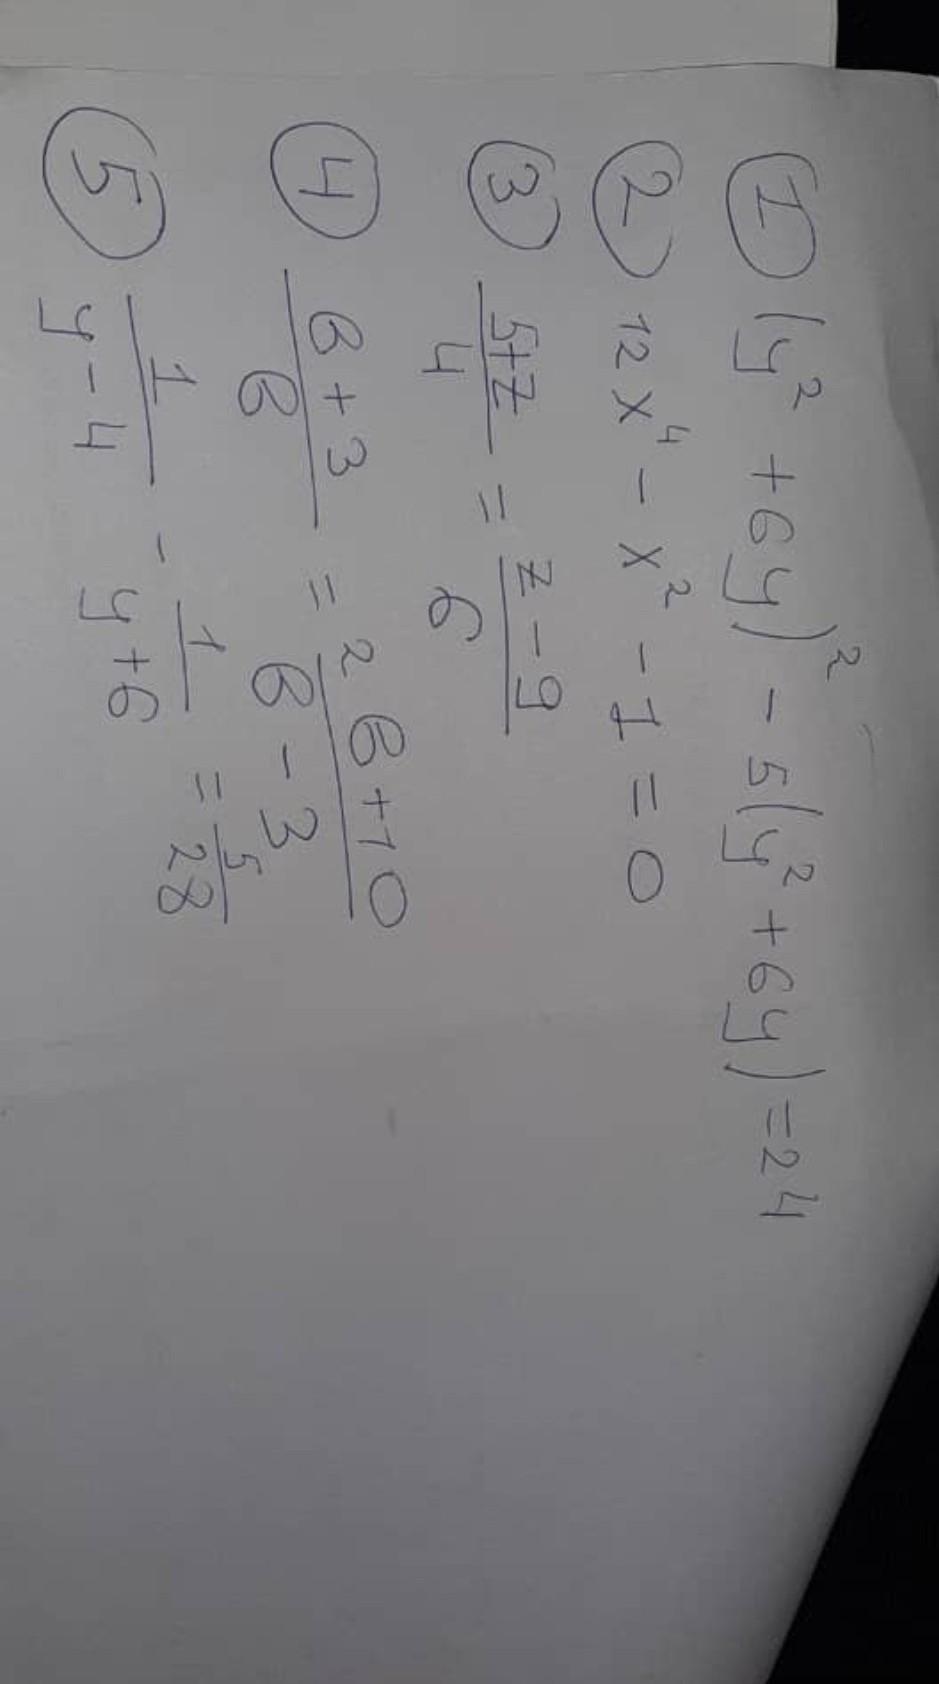 ① (y² + 6y)² - 5(y² + 6y) = 24
② 12x⁴ - x² - 1 = 0
③ (5+z)/4 = (z-9)/6
④ (B+3)/B = (2B+10)/(B-3)
⑤ 1/(y-4) - 1/(y+6) = 5/28